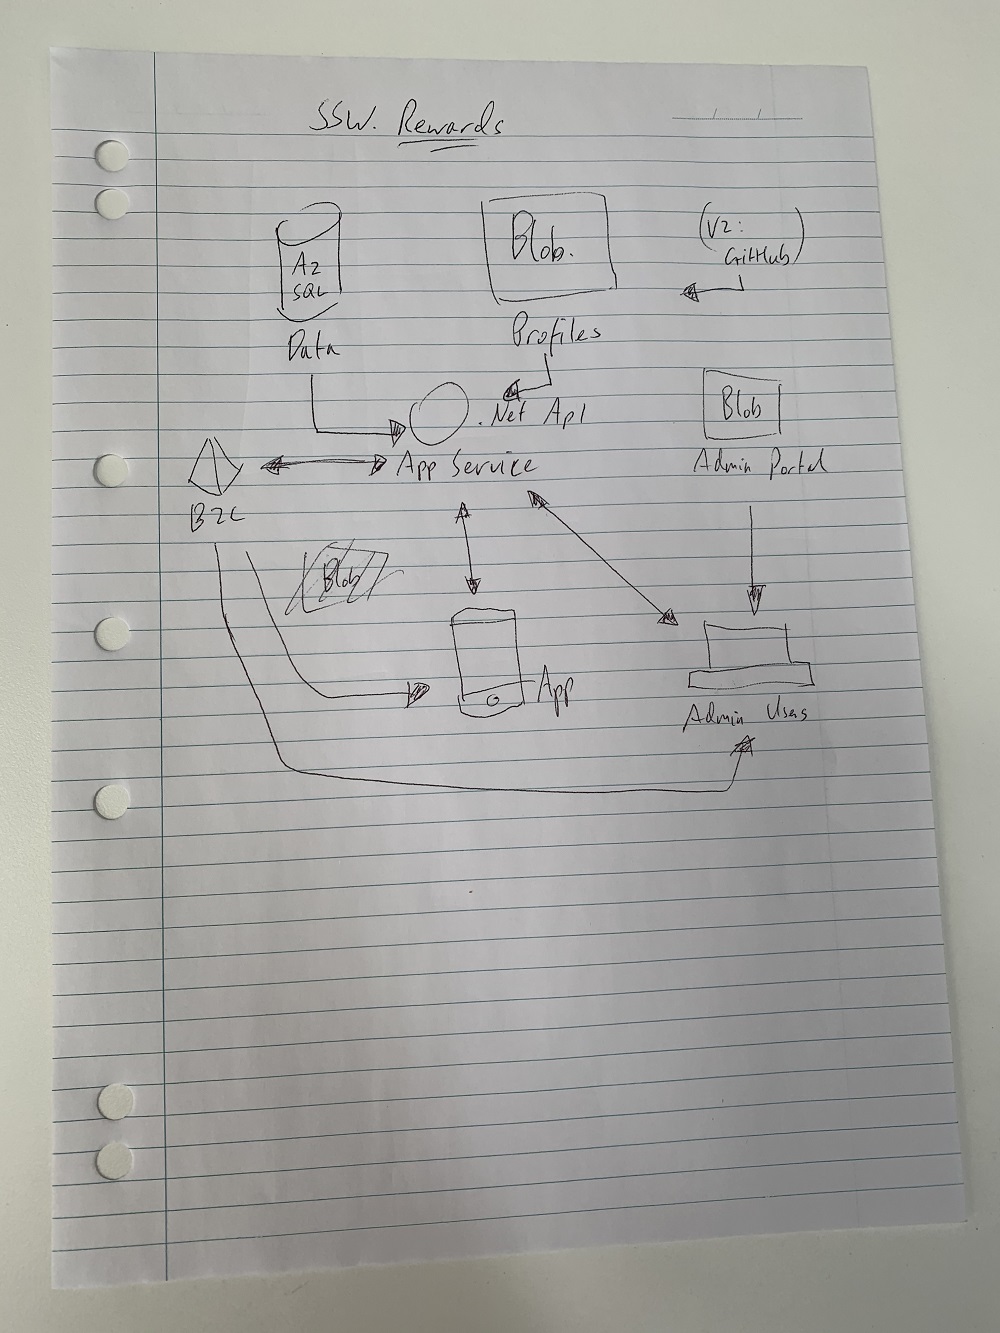 SSW. Rewards
AZ
SQL
Data
Blob.
Profiles
(V2:
GitHub)
.Net API
App Service
Blob
Admin Portal
B2C
Blob
App
Admin Users